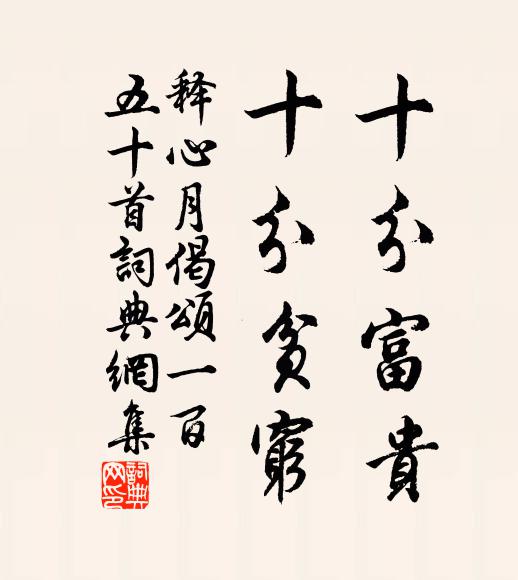 十分富貴
十分貧窮
释心月偈頌一百
五十首詞典網集
詞典
网印